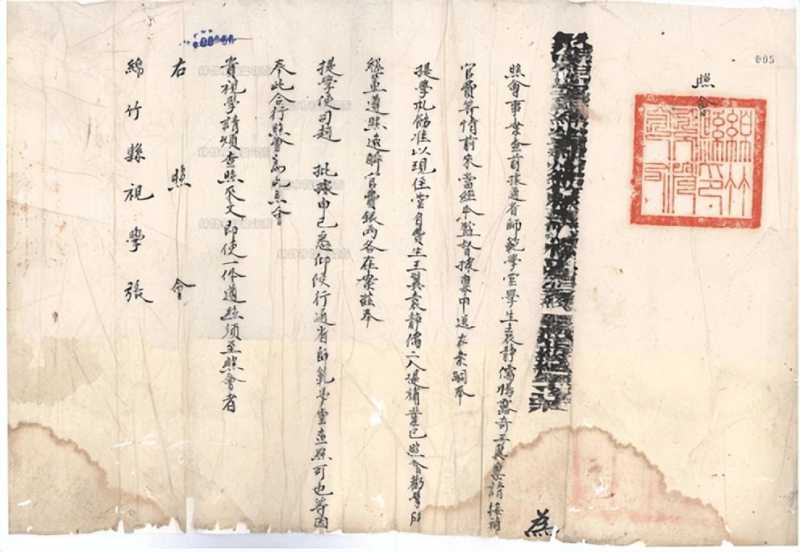 005
照會
為
照會事案查前據通省師範學堂學生袁靜儒楊露奇王翼稟請接補
官費等情前來當經本監督據稟申送在案嗣奉
提學札飭准以現住堂自費生王翼袁靜儒二人遞補業已照會勸學所
經董遵照送解官費銀兩各在案茲奉
提學使司趙 批據申已悉仰候行通省師範學堂查照可也等因
奉此合行照會為此照會
貴視學請煩查照來文即便一体遵照須至照會者
右照會
綿竹縣視學張